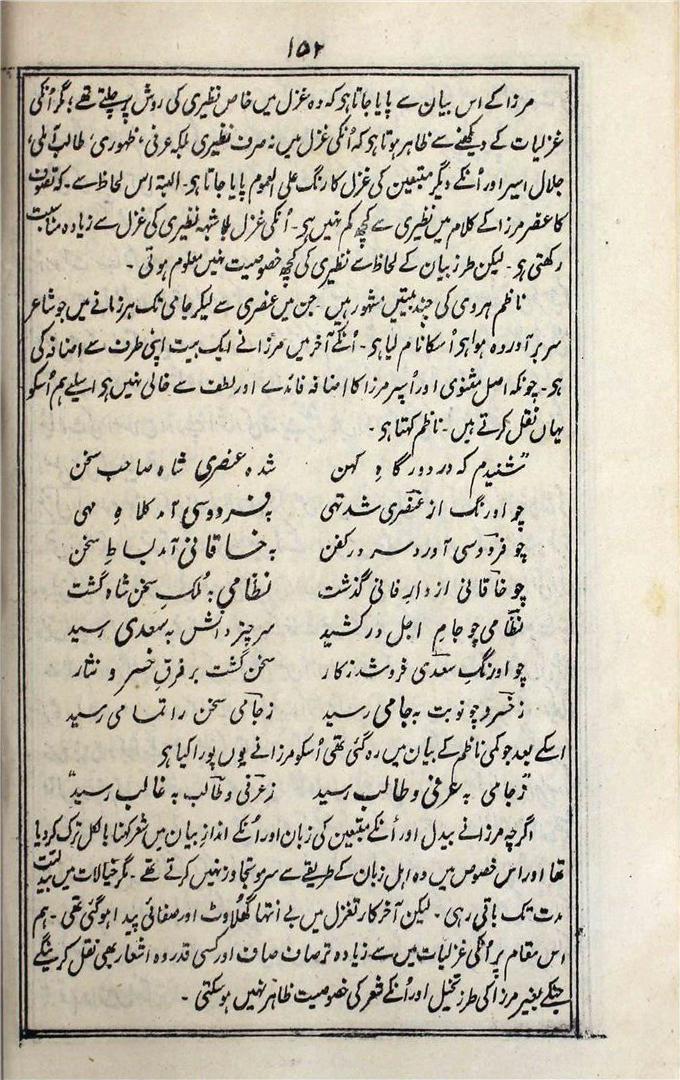 ۱۵۲
مرزا کے اس بیان سے پایا جاتا ہو کہ وہ غزل میں خاص نظیری کی روش پر چلتے تھے؛ مگر اُنکی
غزلیات کے دیکھنے سے ظاہر ہوتا ہو کہ اُنکی غزل میں نہ صرف نظیری بلکہ عرفی، ظہوری، طالب آملی،
جلال اسیر اور اُنکے دیگر متبعین کی غزل کا رنگ علی العموم پایا جاتا ہو۔ البتہ اس لحاظ سے۔ کہ تصوف
کا عنصر مرزا کے کلام میں نظیری سے کچھ کم نہیں ہو۔ اُنکی غزل بلا شبہہ نظیری کی غزل سے زیادہ مناسبت
رکھتی ہو۔ لیکن طرز بیان کے لحاظ سے نظیری کی کچھ خصوصیت نہیں معلوم ہوتی۔
ناظم ہروی کی چند بیتیں مشہور ہیں۔ جن میں عنصری سے لیکر جامی تک ہر زمانے میں جو شاعر
سر بر آوردہ ہوا ہو اُسکا نام لیا ہو۔ اُنکے آخر میں مرزا نے ایک بیت اپنی طرف سے اضافہ کی
ہو۔ چونکہ اصل مثنوی اور اُسپر مرزا کا اضافہ فائدے اور لطف سے خالی نہیں ہو اسلیے ہم اُسکو
یہاں نقل کرتے ہیں۔ ناظم کہتا ہو۔
"شنیدم کہ در دور گاہِ کہن شدہ عنصری شاہ صاحب سخن
چو اورنگ از عنصری شد تہی بہ فردوسی آمد کلاہِ مہی
چو فردوسی آورد سر در کفن بہ خاقانی آمد بساطِ سخن
چو خاقانی از دارِ فانی گذشت نظامی بہ مُلکِ سخن شاہ گشت
نظامی چو جامِ اجل در کشید سرِ چترِ دانش بہ سعدی رسید
چو اورنگِ سعدی فرو شد ز کار سخن گشت بر فرقِ خسرو نثار
ز خسرو چو نوبت بہ جامی رسید ز جامی سخن را تمامی رسید
اسکے بعد جو کمی ناظم کے بیان میں رہ گئی تھی اُسکو مرزا نے یوں پورا کیا ہو
"ز جامی بہ عرفی و طالب رسید ز عرفی و طالب بہ غالب رسید"
اگرچہ مرزا نے بیدل اور اُنکے متبعین کی زبان اور اُنکے اندازِ بیان میں شعر کہنا بالکل ترک کر دیا
تھا اور اس خصوص میں وہ اہل زبان کے طریقے سے سرِ مو تجاوز نہیں کرتے تھے۔ مگر خیالات میں بیدلیت
مدت تک باقی رہی۔ لیکن آخر کار تغزل میں بے انتہا گھلاوٹ اور صفائی پیدا ہو گئی تھی۔ ہم
اس مقام پر اُنکی غزلیات میں سے زیادہ تر صاف صاف اور کسی قدر وہ اشعار بھی نقل کرینگے
جنکے بغیر مرزا کی طرز تخیل اور اُنکے شعر کی خصوصیت ظاہر نہیں ہو سکتی۔